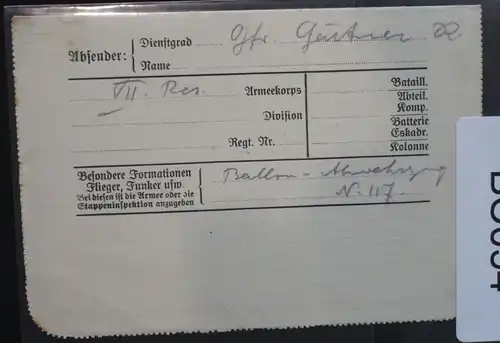 Absender: { Dienstgrad Gfr. Gärtner
Name
VII. Res. Armeekorps
Division
Regt. Nr.
Bataill.
Abteil.
Komp.
Batterie
Eskadr.
Kolonne
Besondere Formationen
Flieger, Funker usw.
Bei diesen ist die Armee oder die
Etappeninspektion anzugeben
Ballon-Abwehrzug
N. 117.